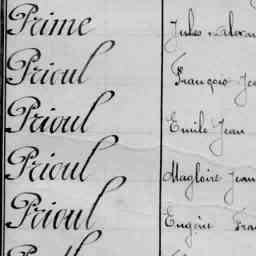 Prime Jules
Prioul François Je
Prioul Emile Jean
Prioul Magloire Jean
Prioul Eugène Fra